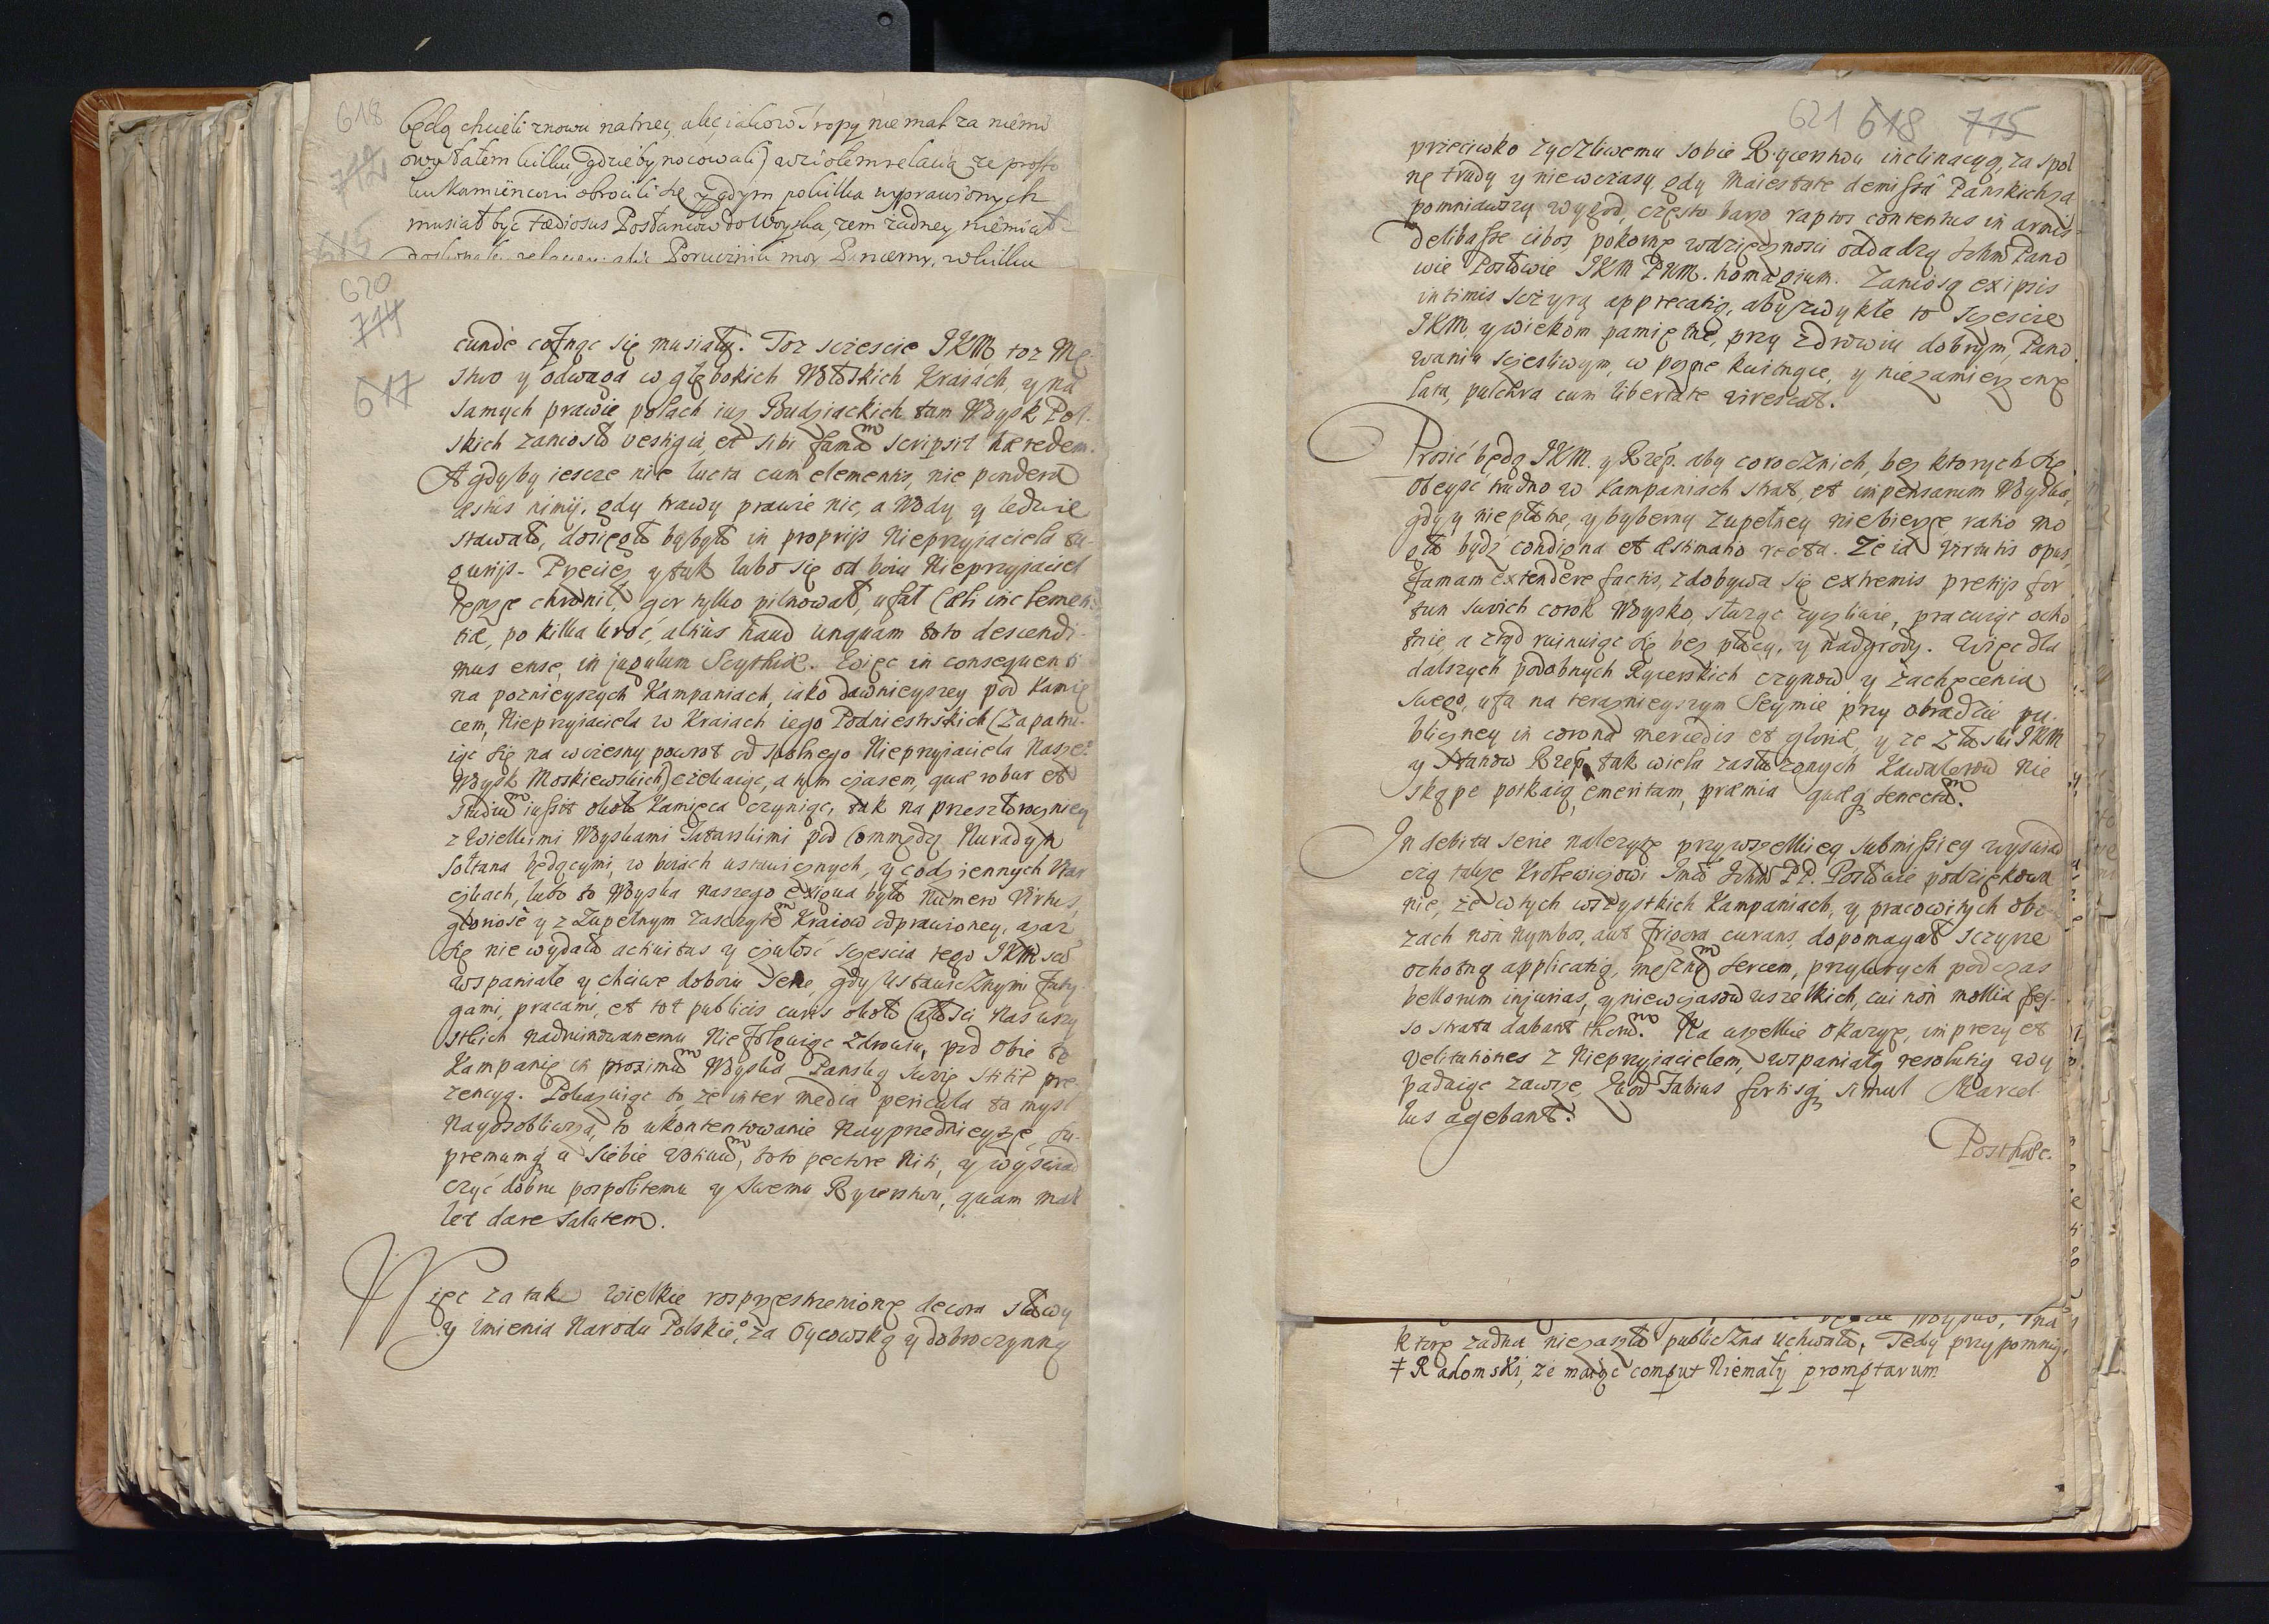 618
będą chcieli znowu natrzeć, alić iakow Tropy nie miał za niemi
712
wysłałem kilku, gdzieby nocowali) wziołem relacią że prosto
ku Kamieńcowi obrocili się
musiał być tædiosus Posłańcow do Woyska, żem żadney niemiał
615
620
714
cundè cofnąc się musiały. Toz sczescie JKM toz Mę-
617
stwo y odwaga w głębokich Wołoskich Kraiách, y na
samych prawie polach iuz Budziackich tam Woysk Pol-
skich zaniosło vestigia, et sibi famam scripsit hæredem.
A gdyby iescze nie lucta cum elementis, nie pondera
æstus nimij, gdy trawy prawie nic, a Wody y ledwie
stawało, dosięgło by było in proprijs Nieprzyiaciela tu-
gurijs. Przecież y tak lubo się od boiu Nieprzyiaciel
tęzye chronił, gor tylko pilnował, ufał Cæli inclemen-
tiæ, po kilka kroć, altius haud unquam toto descendi-
mus ense, in jugulum Scythiæ. Więc in consequenti
na poznieyszych Kampaniach, iako dawnieyszey pod Kamię
cem, Nieprzyiaciela w Kraiach iego Podniestrskich (Zapatru-
iąc się na wczesny powrot od spolnego Nieprzyiaciela Naszego
Woysk Moskiewskich) czekaiąc, a tym czasem, quæ robur et
studium iussit około Kamięca czyniąc, tak na przeszłoroczniey
z Wielkimi Woyskami Tatarskimi pod Commędą Nuradyn
Sołtana będącymi, w boiach ustawicznych, y codziennych Har
cykach, lubo to Woyska naszego exigua było Numero Virtus,
głonośe y z Zupełnym zasczytem Kraiow odprawioney, azaż
się nie wydała activitas y czułość sczescia tego JKM sed
wspaniałe y chciwe doboiu Serce, gdy ustawicznymi faty-
gami, pracami, et tot publicis curis około Całości Nas wszy
stkich nadruinowanemu Nie folguiąc Zdrowiu, pod obie te
Kampanię in proximum Woyska Panską swoię stitit pre-
zencyą. Pokazuiąc to, że inter media pericula ta mysl
Nayosobliwsza, to ukontentowanie Nayprzednieysze, su-
premumq u siebie votum, toto pectore Niti, y wyswiad
czyć dobru pospolitemu y swemu Rycerstwu, quam mal
let dare salutem.
Więc za tak wielkie rosprzestrzenionę decora sławy
y Imienia Narodu Polskiego, za Oycowską y dobroczynną
621 618 715
przeciwko zyczliwemu sobie Rycerstwu inclinacyą, za spol
nę trudy y niewczasy, gdy Maiestate demissâ Panskich za
pomniawszy wygod, często bąrzo raptos contentus in armis
delibasse cibos, pokornę wdzięcznosci oddadzą Ichm Pano
wie Posłowie JKM PNM. homagium. Zaniosą ex ipsis
intimis sczyrą apprecatią, aby zwykłe to sczescie
JKM y wiekom pamiętne, przy zdrowiu dobrym, Pano
waniu sczesliwym, w pozne kwitnące, y niezamierzonę
lata, pulchra cum libertate virescat.
Prosić będą JKM. y Rzep. aby corocznich, bez ktorych się
obeysć trudno w Kampaniach strat, et impensarum Woyska,
gdy y niepłatne, y hyberny zupełney niebierze ratio mo
gła bydź condigna et æstimatio recta. Że id virtutis opus,
famam extendere factis, zdobywa się extremis pretijs for
tun swich corok Woysko, sluząc zyczliwie, pracuiąc ocho
tnie, a ztąd ruinuiąc się bez płacy, y nadgrody. Więc dla
dalszych podobnych Rycerskich czynow y zachęcenia
swego, ufa na teraznieyszym Seymie przy obradzie pu-
bliczney in corona mercedis et gloriæ, y że z łaski JKM
y Stanow Rzep. tak wiela zasłuzonych Kawalerow nie
skąpe potkaią, emeritam, præmia quæq senectam.
In debita serie nalezytę przy wszelkiey submissiey wyswiad
czą także Krolewiczowi Jmci Ichm PP. Posłowie podziękowa
nie, że w tych wszystkich Kampaniach, y pracowitych obo
zach non Nymbos, aut frigora curans, dopomagał sczyrze
ochotną applicatią, męznym sercem, przykrych podczas
bellorum injurias, y niewczasow wszelkich, cui non mollia fes-
so strata dabant thorum. Na wszelkie okazye, imprezy et
velitationes z Nieprzyiacielem, wspaniałą resolutią wy
padaiąc zawsze, Quod Fabius fortisq simul Marcel-
lus agebant.
Posthæc.
ktorę zadna niezaszła publiczna uchwała, Tedy przypomnią
‡ Radomski, że maiąc comput Niemały promptarum